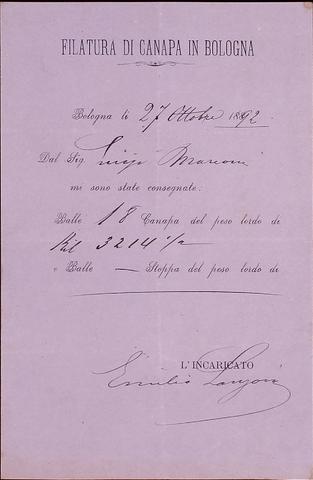 FILATURA DI CANAPA IN BOLOGNA
Bologna lì 27 Ottobre 1892.
Dal Sig. Luigi Marconi
mi sono state consegnate:
Balle 18 Canapa del peso lordo di
Kil 3214 1/2
e Balle — Stoppa del peso lordo di
L'INCARICATO
Emilio